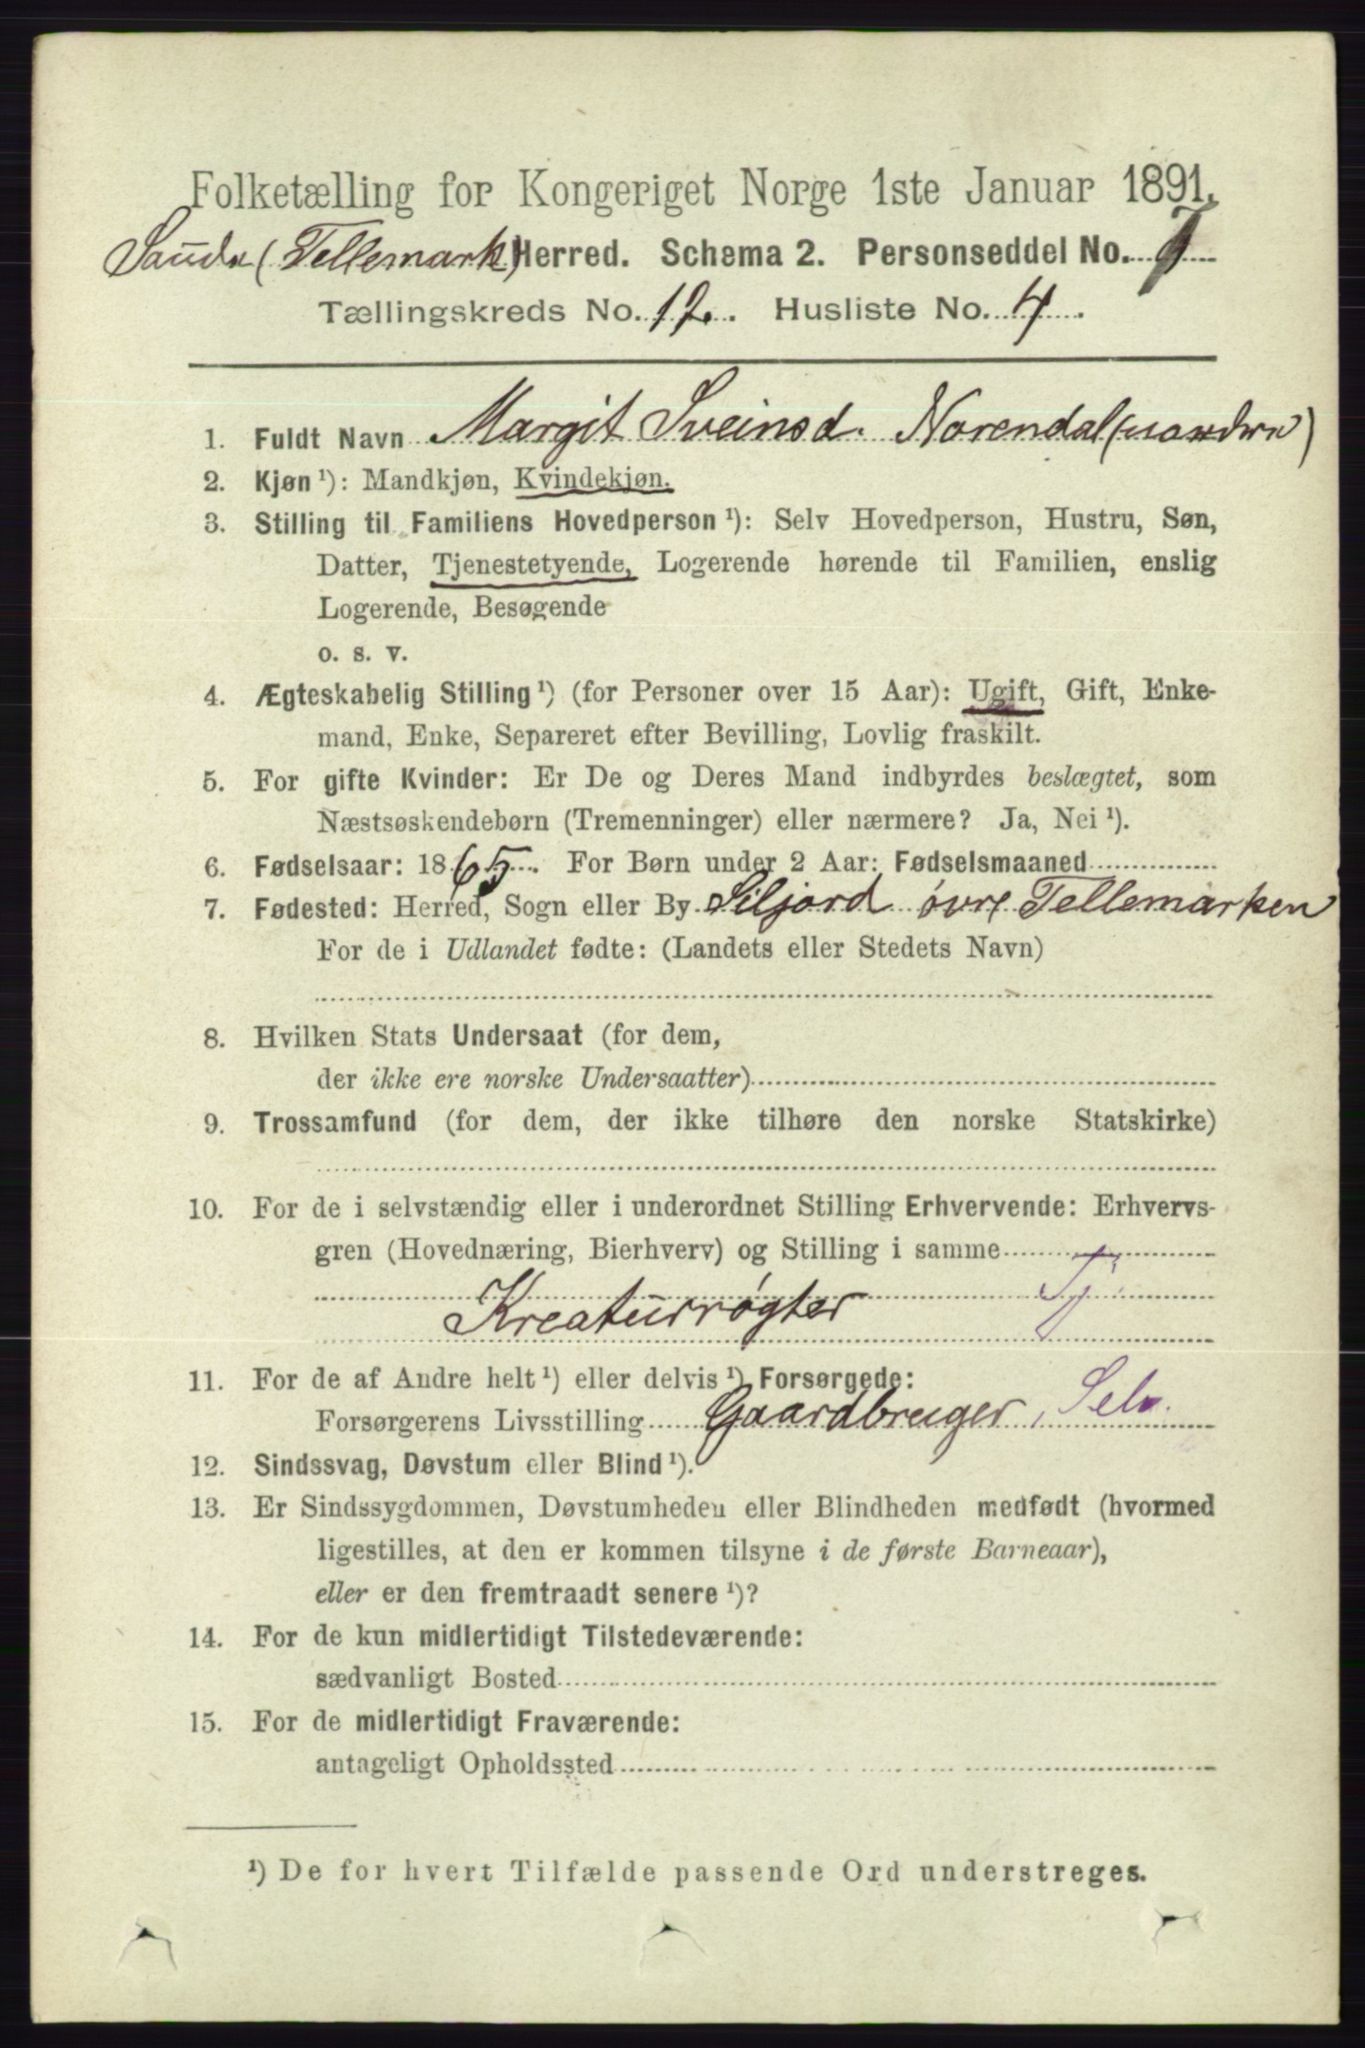 Folketælling for Kongeriget Norge 1ste Januar 1891.
Saude (Tellemark) Herred. Schema 2. Personseddel No. 7
Tællingskreds No. 12. Husliste No. 4.
1. Fuldt Navn Margit Sveinsd. Norendal (nordre)
2. Kjøn ¹): Mandkjøn, Kvindekjøn.
3. Stilling til Familiens Hovedperson ¹): Selv Hovedperson, Hustru, Søn,
Datter, Tjenestetyende, Logerende hørende til Familien, enslig
Logerende, Besøgende
o. s. v.
4. Ægteskabelig Stilling ¹) (for Personer over 15 Aar): Ugift, Gift, Enke-
mand, Enke, Separeret efter Bevilling, Lovlig fraskilt.
5. For gifte Kvinder: Er De og Deres Mand indbyrdes beslægtet, som
Næstsøskendebørn (Tremenninger) eller nærmere? Ja, Nei ¹).
6. Fødselsaar: 1865. For Børn under 2 Aar: Fødselsmaaned
7. Fødested: Herred, Sogn eller By Siljord øvre Tellemarken
For de i Udlandet fødte: (Landets eller Stedets Navn)
8. Hvilken Stats Undersaat (for dem,
der ikke ere norske Undersaatter)
9. Trossamfund (for dem, der ikke tilhøre den norske Statskirke)
10. For de i selvstændig eller i underordnet Stilling Erhvervende: Erhvervs-
gren (Hovednæring, Bierhverv) og Stilling i samme
Kreaturrøgter Tj
11. For de af Andre helt ¹) eller delvis ¹) Forsørgede:
Forsørgerens Livsstilling Gaardbruger, Selv.
12. Sindssvag, Døvstum eller Blind ¹).
13. Er Sindssygdommen, Døvstumheden eller Blindheden medfødt (hvormed
ligestilles, at den er kommen tilsyne i de første Barneaar),
eller er den fremtraadt senere ¹)?
14. For de kun midlertidigt Tilstedeværende:
sædvanligt Bosted
15. For de midlertidigt Fraværende:
antageligt Opholdssted
¹) De for hvert Tilfælde passende Ord understreges.